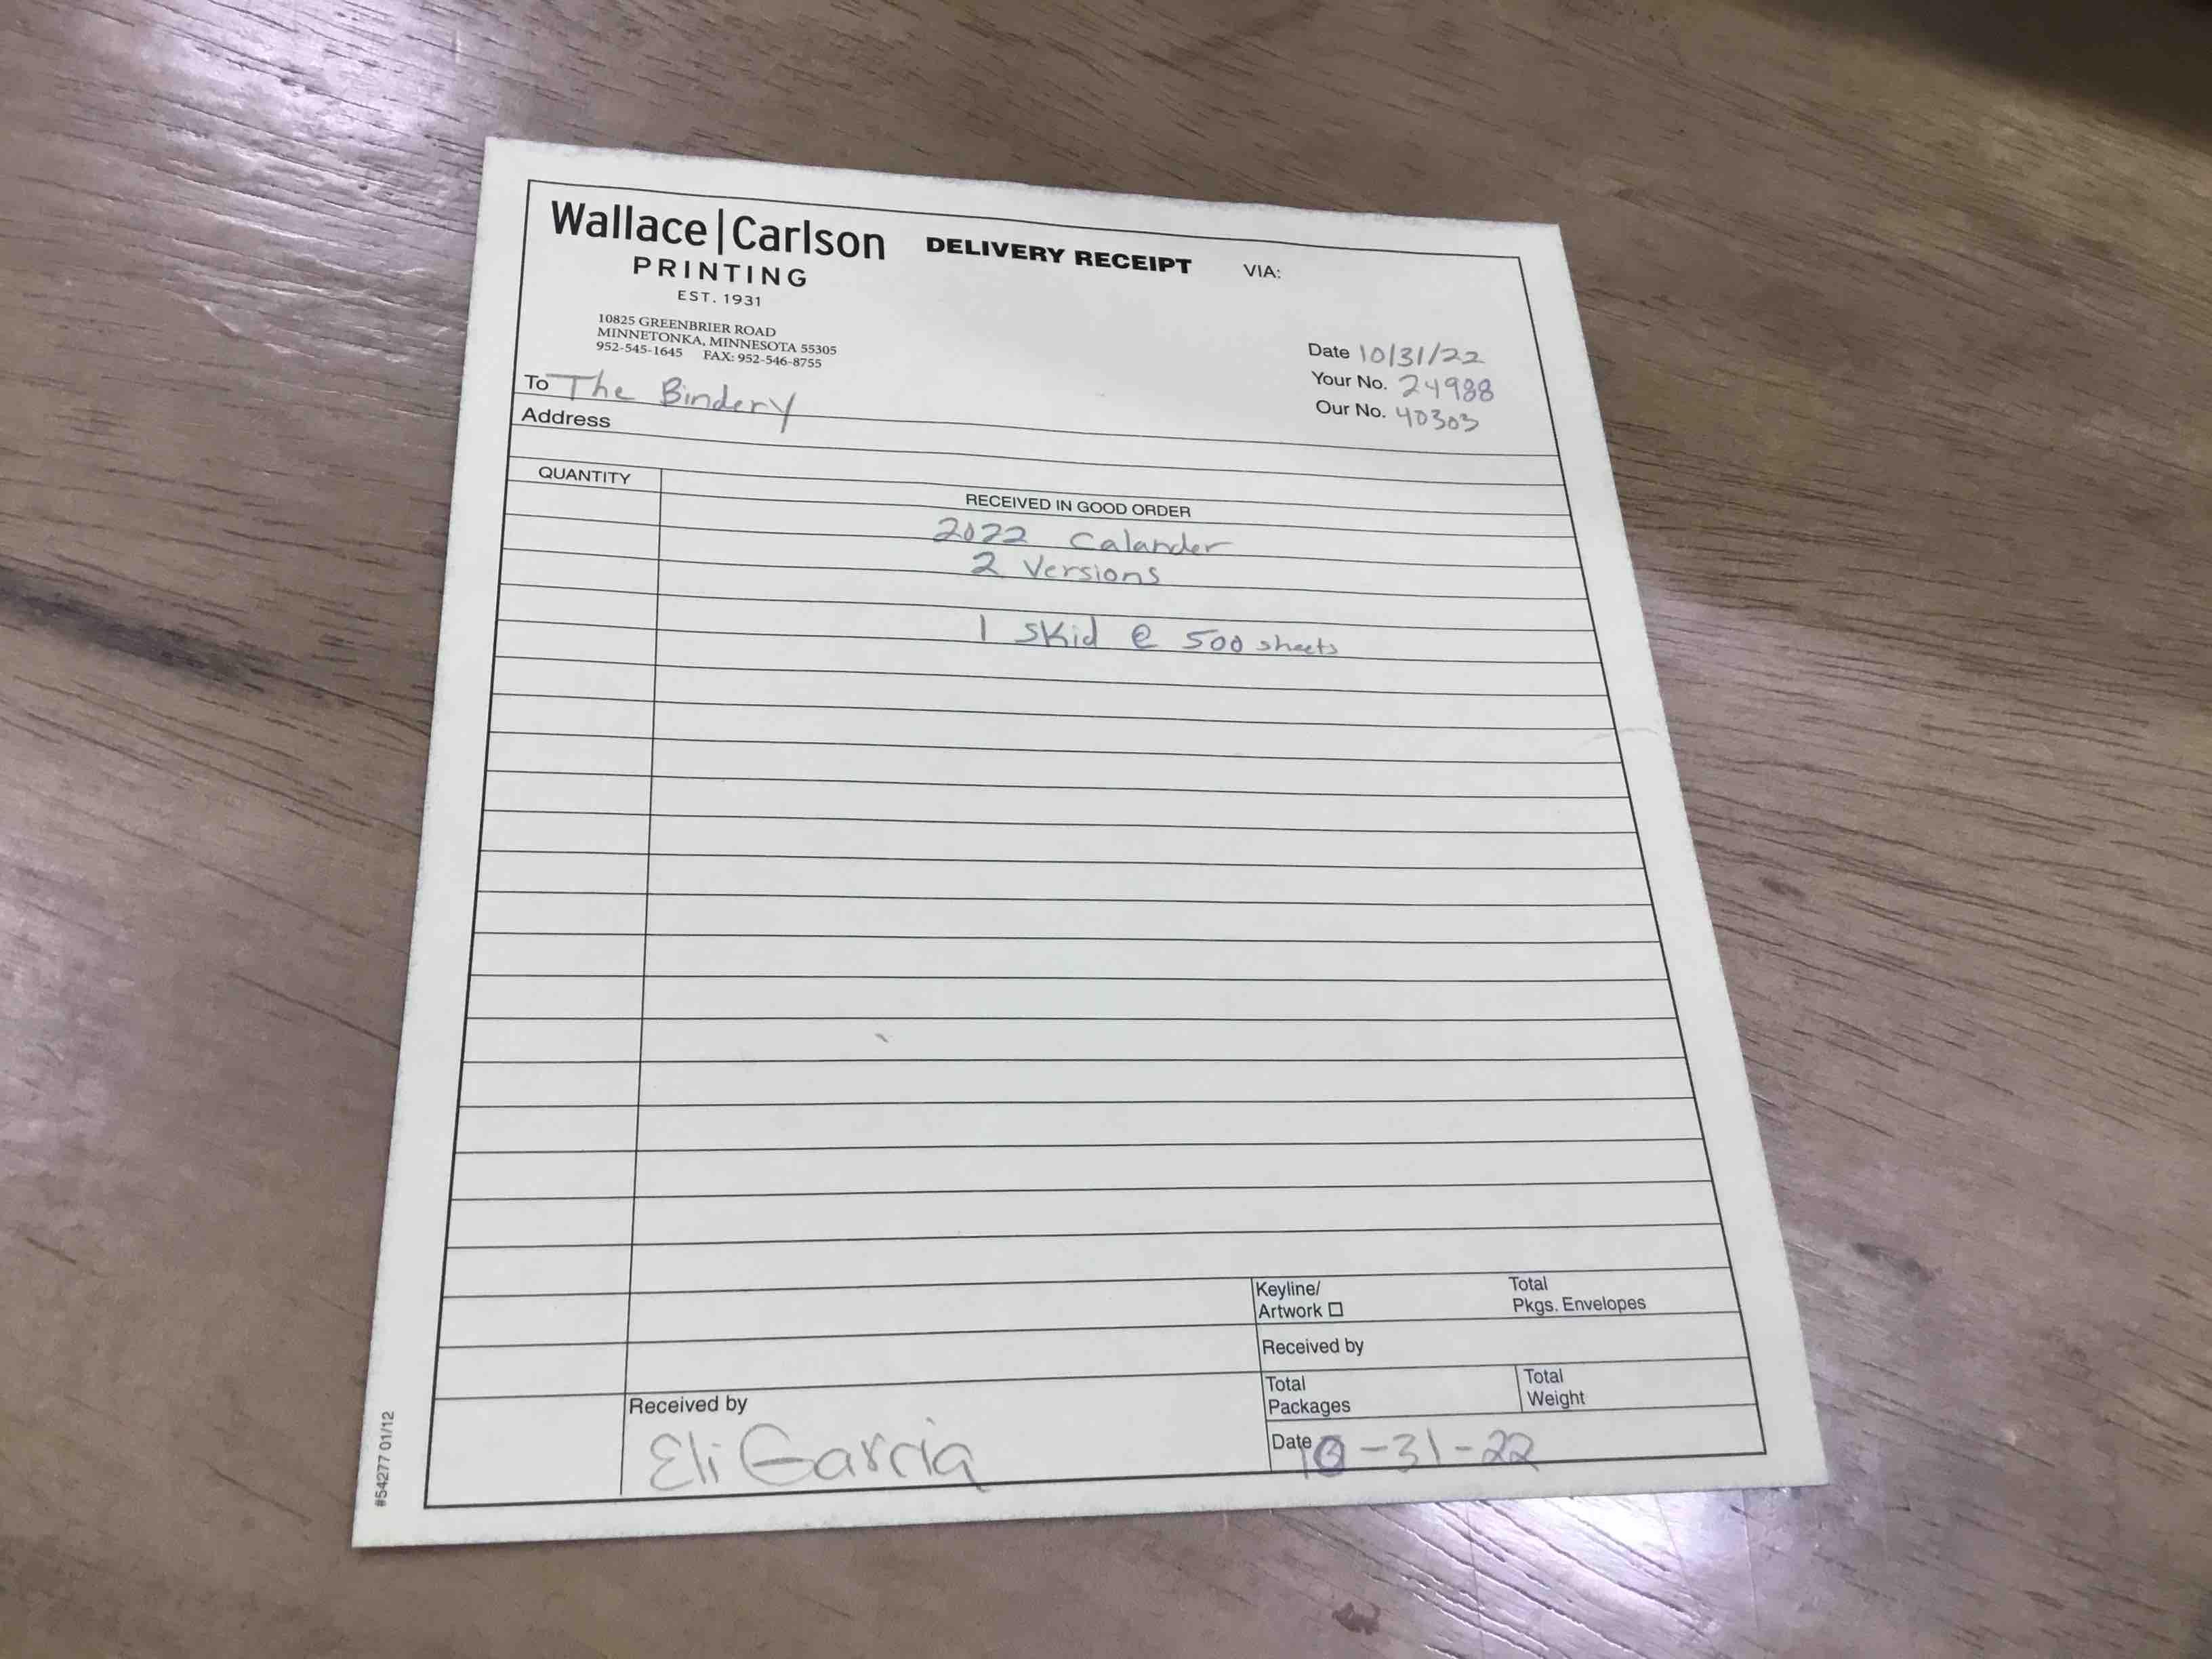 Wallace|Carlson
PRINTING
EST. 1931
10825 GREENBRIER ROAD
MINNETONKA, MINNESOTA 55305
952-545-1645 FAX: 952-546-8755
DELIVERY RECEIPT
VIA:
Date 10/31/22
Your No. 24988
Our No. 40303
To The Bindery
Address
QUANTITY
RECEIVED IN GOOD ORDER
2022 Calander
2 Versions
1 Skid @ 500 sheets
Keyline/
Artwork ☐
Total
Pkgs. Envelopes
Received by
Total
Packages
Total
Weight
Received by
Eli Garcia
Date 10-31-22
#54277 01/12